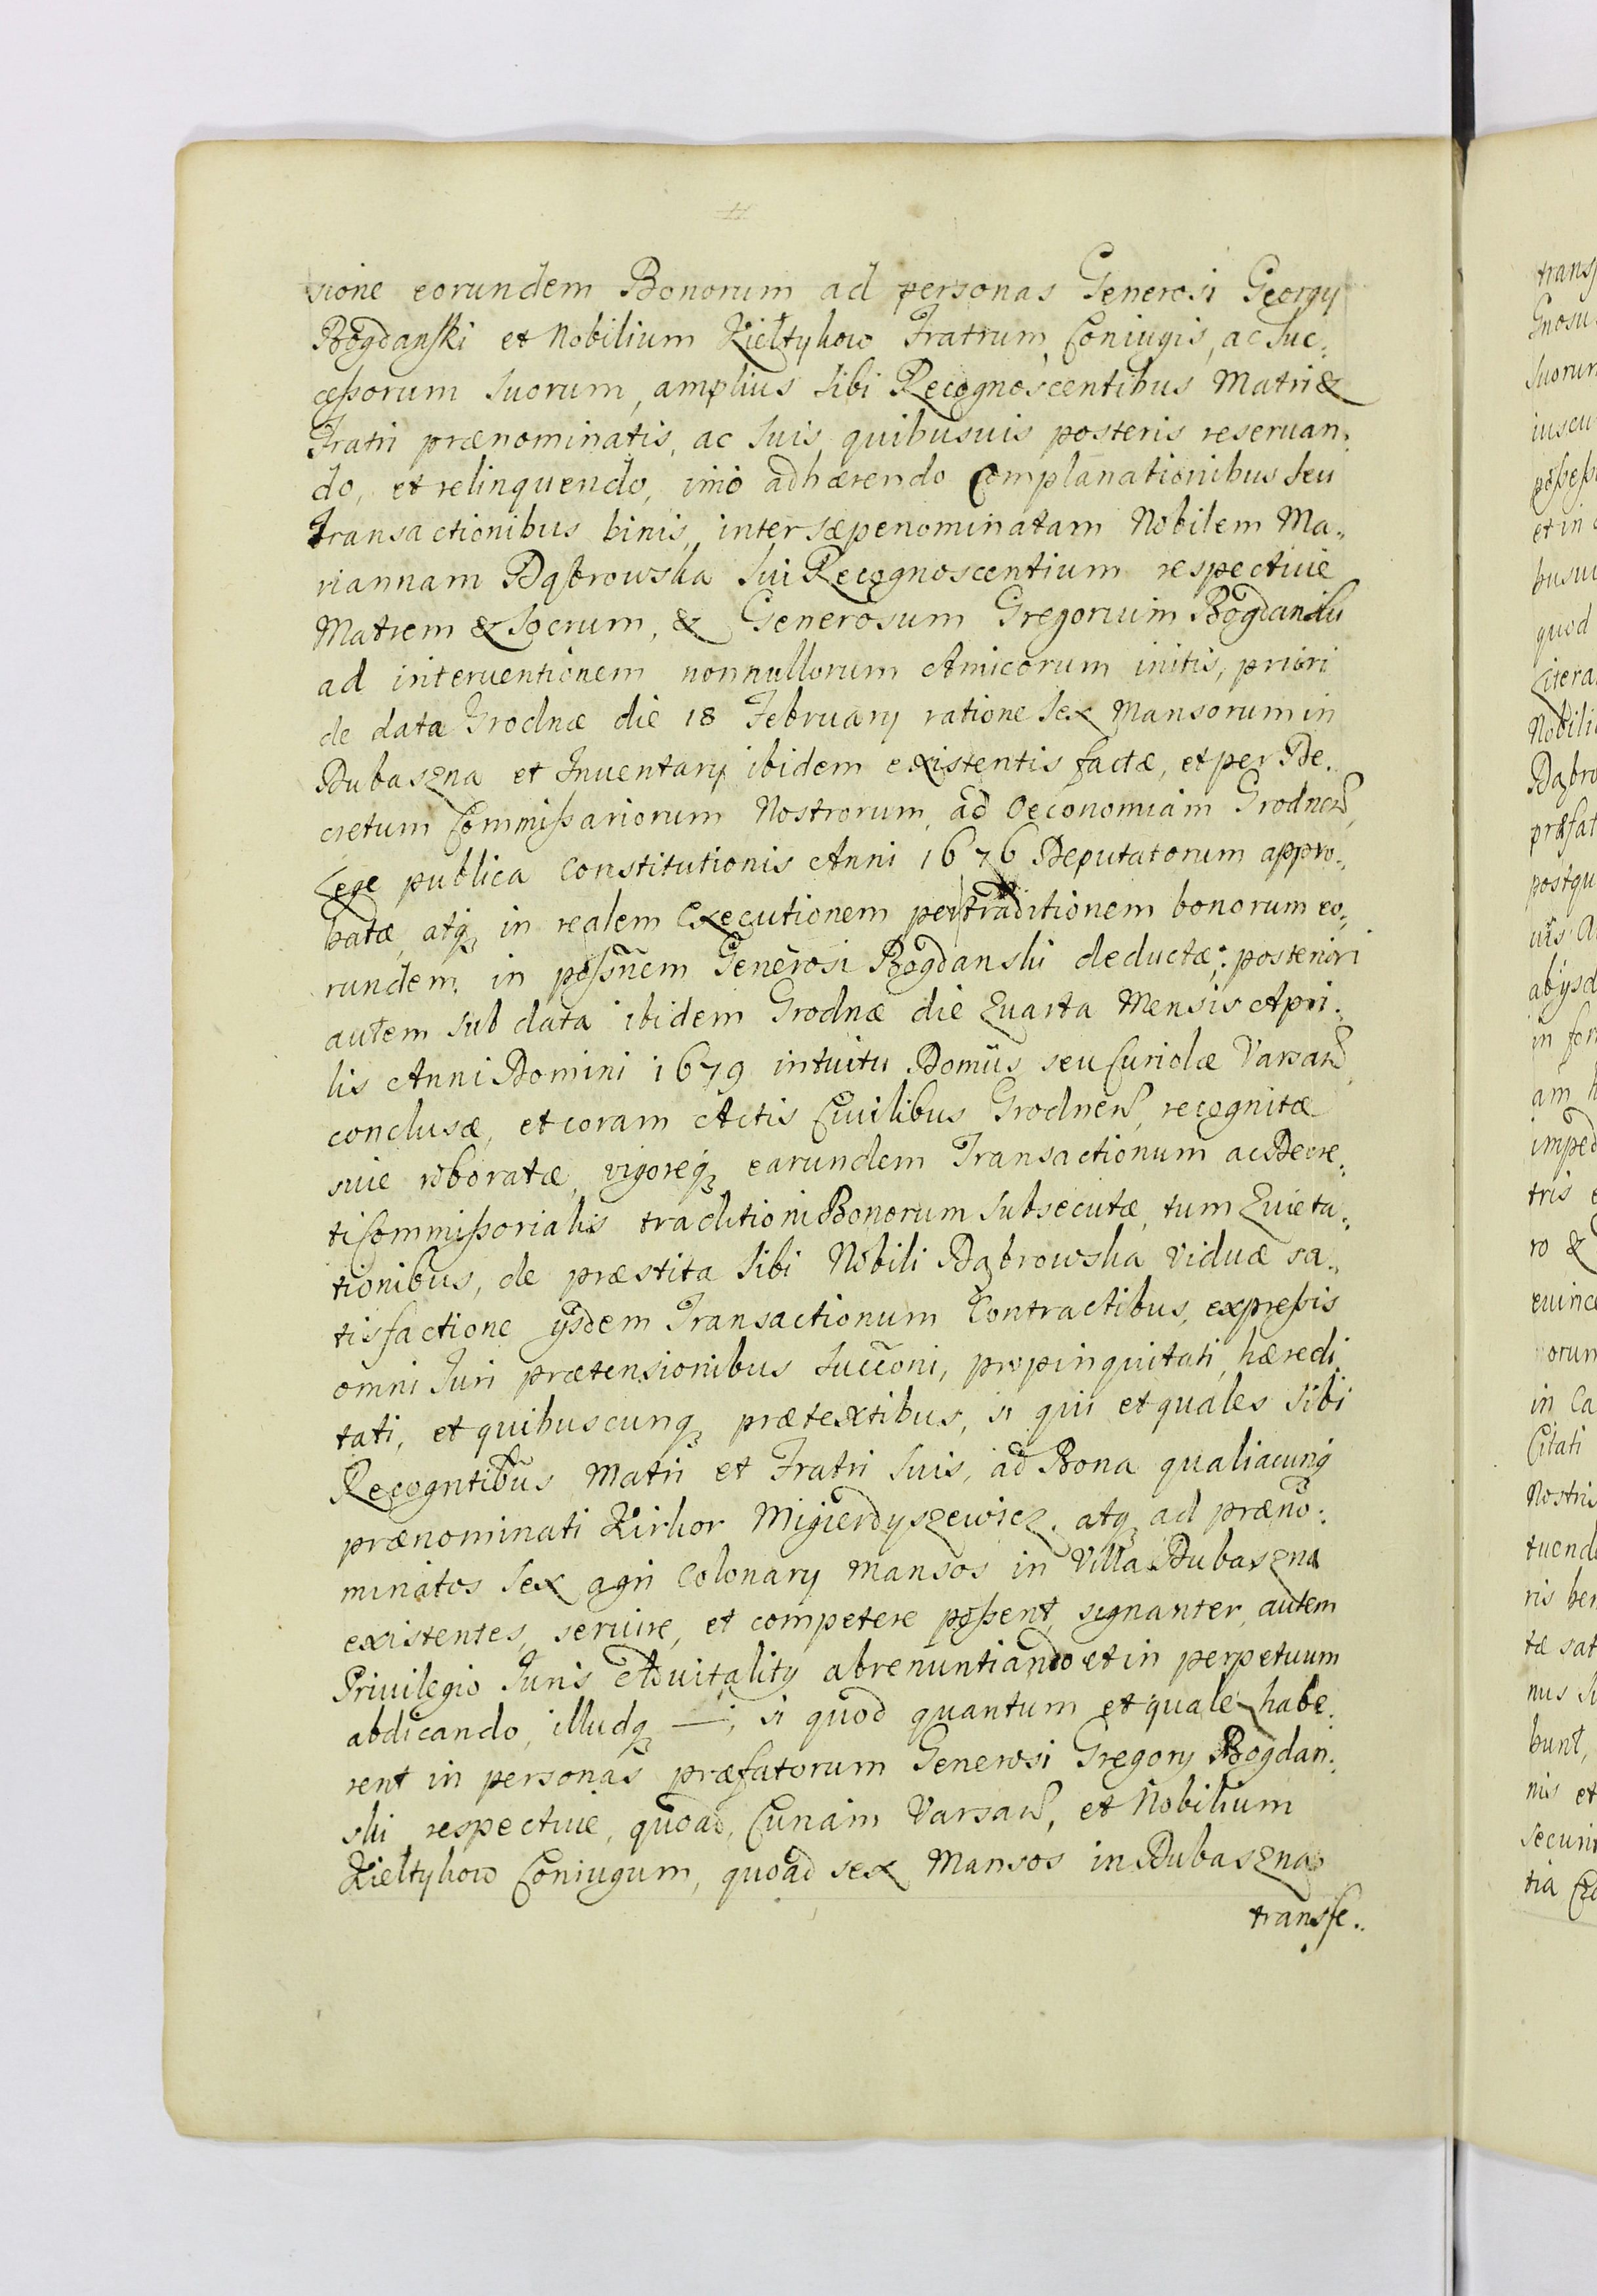 sione eorundem Bonorum ad personas Generosi Georgij
Bogdanski et Nobilium Kieltykow Fratrum, Coniugis, ac Suc:
cessorum suorum, amplius sibi Recognoscentibus Matri &
Fratri prænominatis, ac suis quibusuis posteris reseruan:
do, et relinquendo, imò adhærendo Complanationibus seu
Transactionibus binis, inter sæpenominatam Nobilem Ma:
riannam Dąbrowska sui Recognoscentium respectiuè
Matrem & Socrum, & Generosum Gregorium Bogdanski
ad interuentionem nonnullorum Amicorum initis, priori
de data Grodnæ die 18 February ratione sex Mansorum in
Dubaszna et Inuentarij ibidem existentis factæ, et per De:
cretum Commissariorum Nostrorum, ad Oeconomiam Grodnen̄,
Lege publica Constitutionis Anni 1676 Deputatorum appro:
batæ, atq₃ in realem Executionem per traditionem bonorum eo:
rundem in possnem Generosi Bogdanski deductæ: posteriori
autem sub data ibidem Grodnæ die Quarta Mensis Apri:
lis Anni Domini 1679 intuitu Domûs seu Curiolæ Varsav̄,
conclusæ, et coram Actis Ciuilibus Grodnen̄, recognitæ
siue roboratæ, vigoreq₃ earundem Transactionum ac Decre:
ti Commissorialis traditioni Bonorum subsecutæ, tum Quieta:
tionibus, de præstita sibi Nobili Dąbrowska Viduæ sa:
tisfactione ijsdem Transactionum Contractibus, expressis
omni Juri prætensionibus Succōni, propinquitati, hæredi:
tati, et quibuscunq₃ prætextibus, si qui et quales sibi
Recogntibūs Matri et Fratri suis, ad Bona qualiacunq̄
prænominati Kirkor Migierdyszewicz, atq₃ ad præno:
minatos sex agri Colonary Mansos in Villa Dubaszna
existentes, seruire, et competere possent, signanter, autem
Priuilegio Juris Aduitalitij abrenuntiando et in perpetuum
abdicando, illudq₃ —; si quod quantum et quale habe:
rent in personas præfatorum Generosi Gregorij Bogdan:
ski respectiuè, quoad, Curiam Varsav̄, et Nobilium
Kieltykow Coniugum, quoad sex Mansos in Dubaszna
transfe:
trans
Gnosu
suorum
et in
quod
Litera
Nobili
Dąbro
præfat
postqu
abijsd
in for
imped
tris
ro &
in Ca
Citati
Nostris
tuend
ris
tæ sat
bunt,
nis et
securi
tia